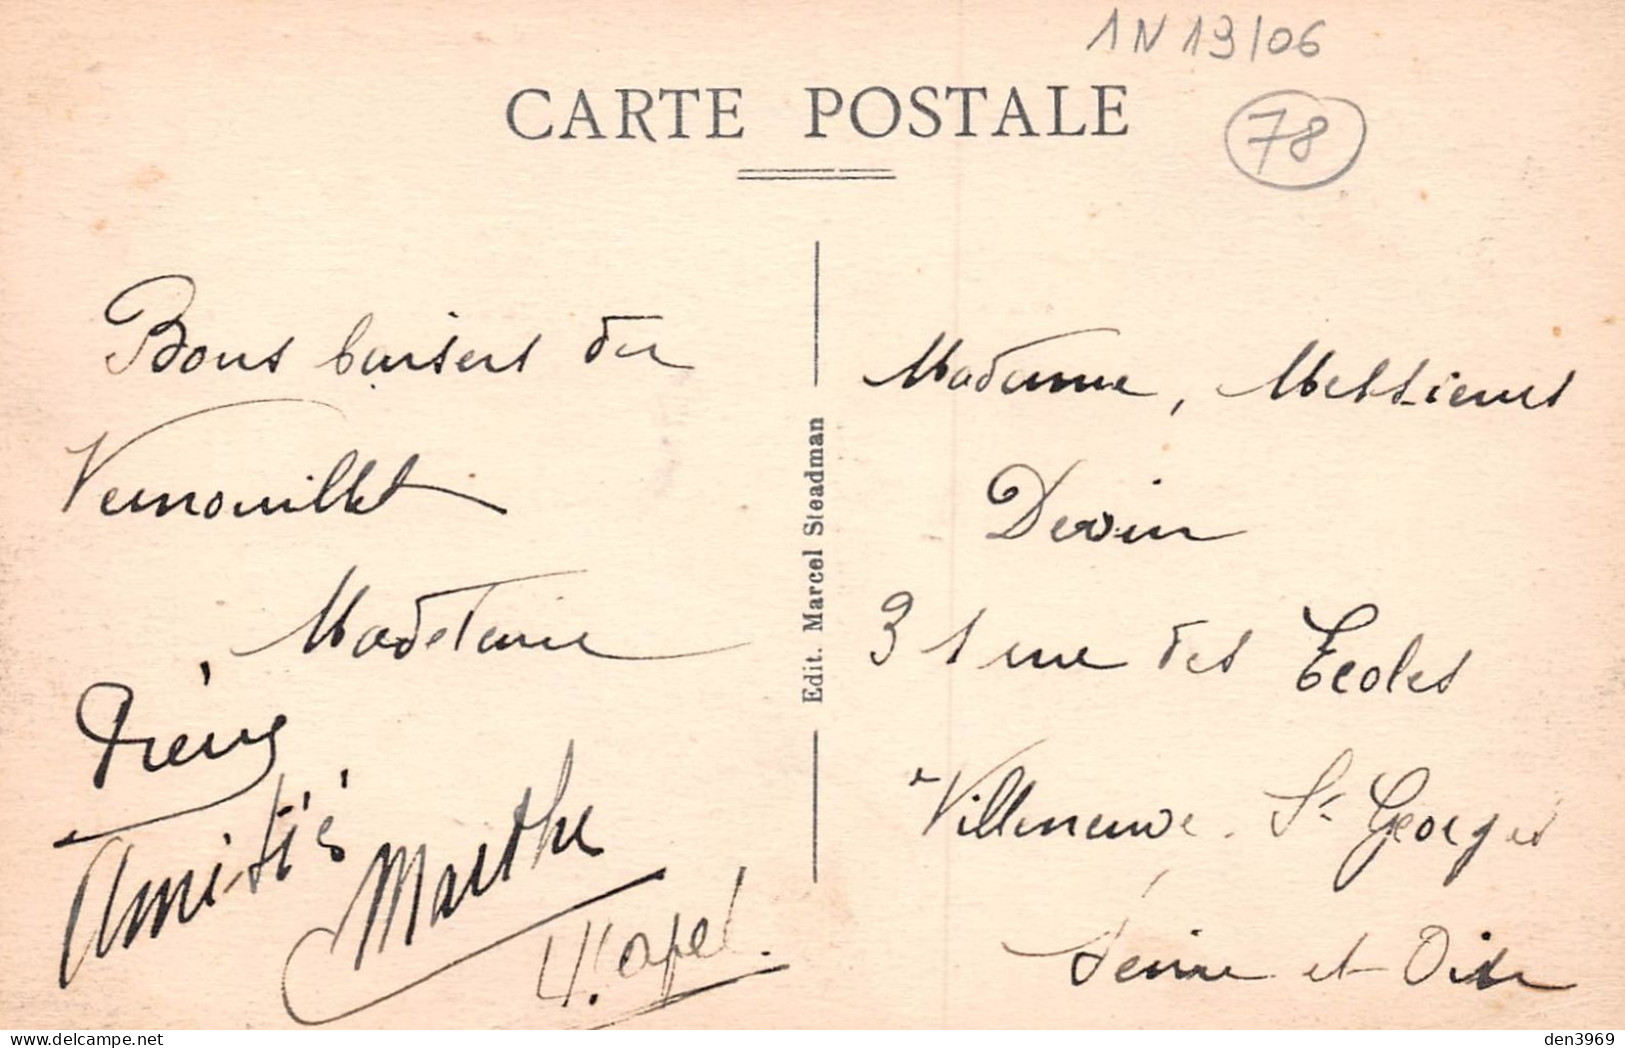 1N 13/06
CARTE POSTALE
78
Bons baisers du
Vernouillet
Madeleine
Amitiés
Marthe
Edit. Marcel Steadman
Madame, Messieurs
Devin
31 rue des Ecoles
Villeneuve. St Georges
Seine et Oise
den3969